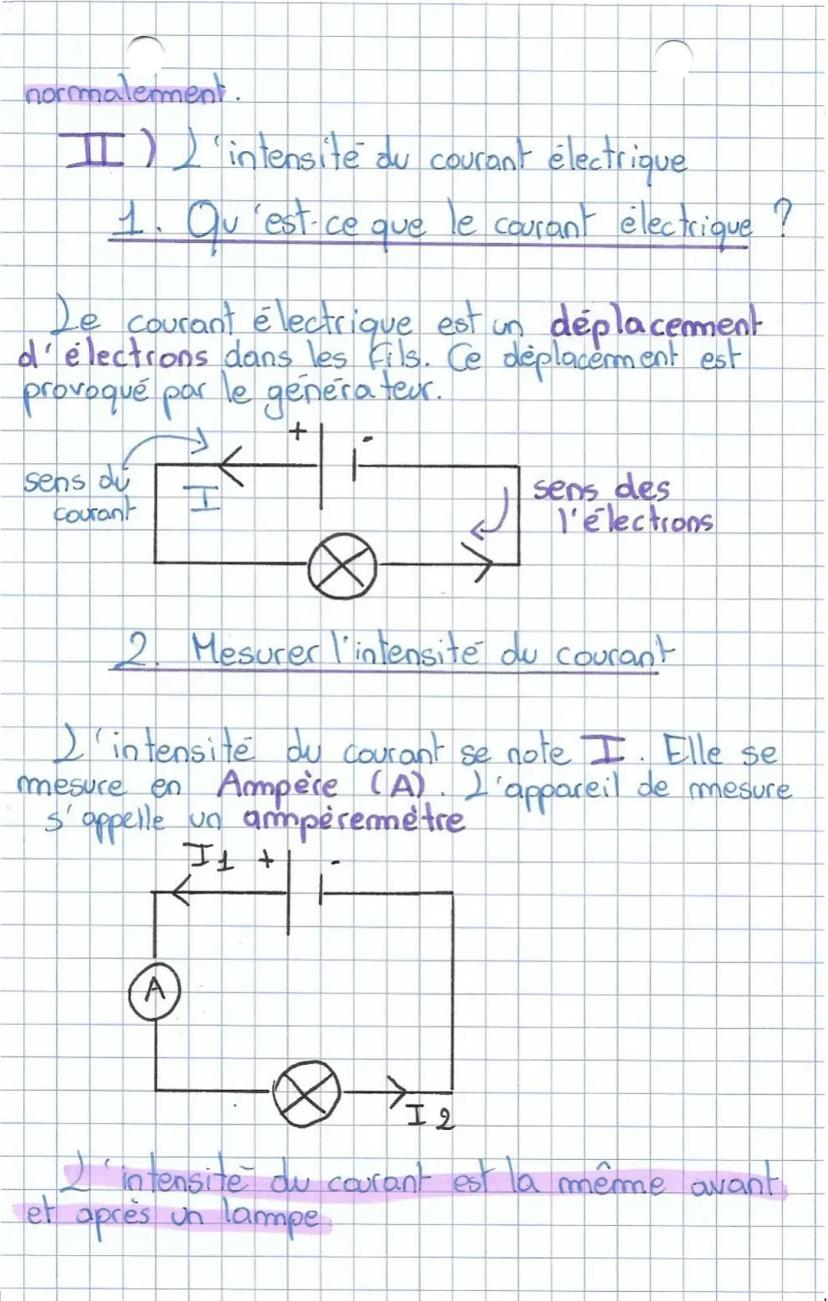 normalement.
II) L'intensité du courant électrique
1. Qu'est-ce que le courant électrique ?
Le courant électrique est un déplacement
d'électrons dans les fils. Ce déplacement est
provoqué par le générateur.
+ -
sens du
courant
I
sens des
l'électrons
2. Mesurer l'intensité du courant
L'intensité du courant se note I. Elle se
mesure en Ampère (A). L'appareil de mesure
s'appelle un ampèremètre
I1 + -
A
I2
L'intensité du courant est la même avant
et après un lampe